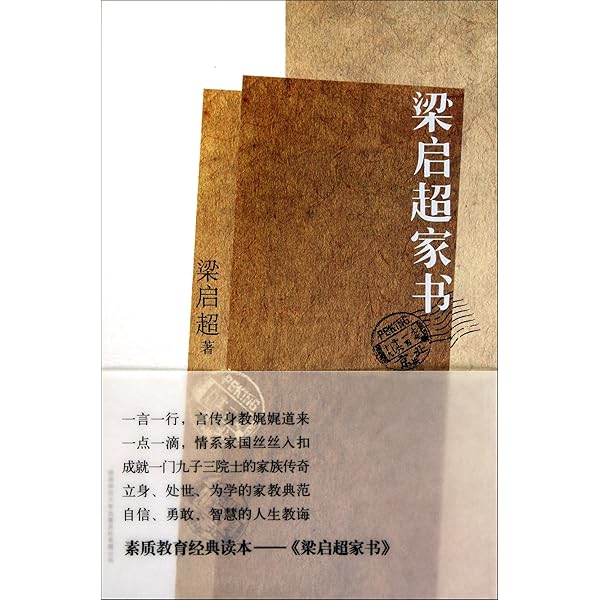 梁启超家书
梁启超 著
PEKING
PEKING
一言一行，言传身教娓娓道来
一点一滴，情系家国丝丝入扣
成就一门九子三院士的家族传奇
立身、处世、为学的家教典范
自信、勇敢、智慧的人生教诲
素质教育经典读本——《梁启超家书》